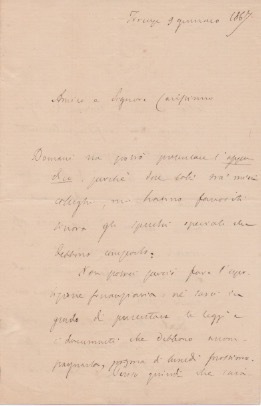 Firenze 9 gennaro 1867
Amico e Signore Carissimo
Domani non potrò presentare l'appen
dice, perchè due soli tra' miei
colleghi, mi hanno forniti
finora gli specchi speciali che
debbono comporla.
Non potrei perciò fare l'espo
sizione finanziaria, nè sarei in
grado di presentare le leggi e
i documenti che debbono accom
pagnarla, prima di lunedì prossimo.
quindi che sarà